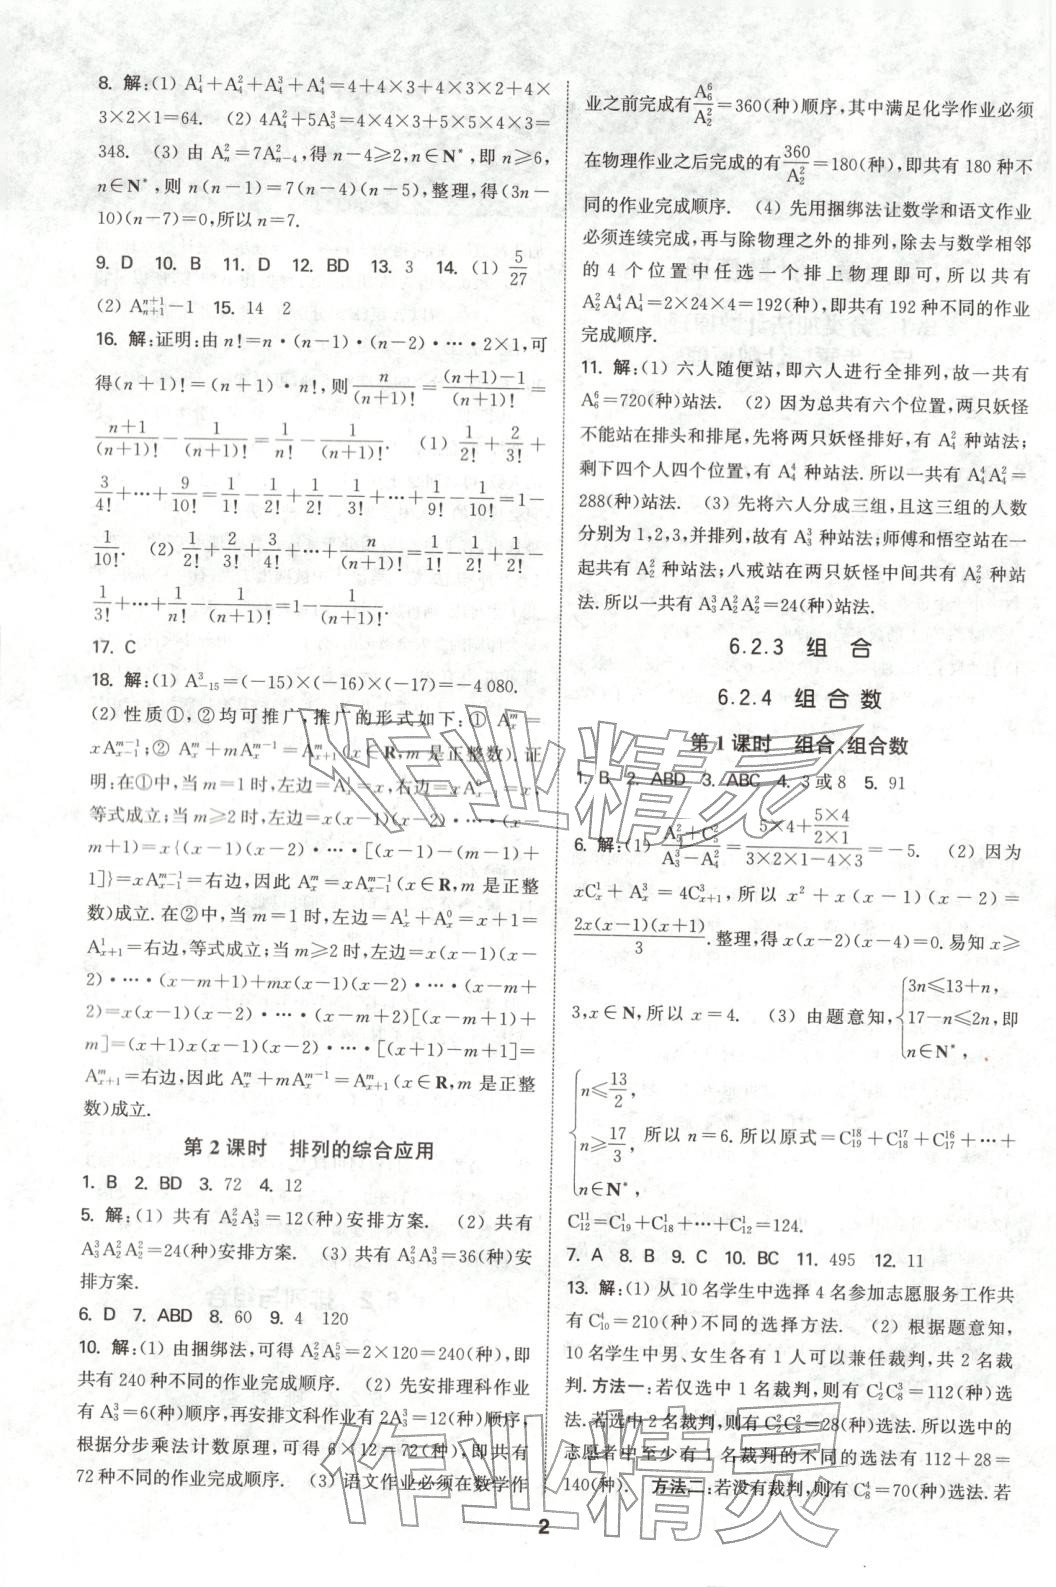 8. 解:(1) A₄¹+A₄²+A₄³+A₄⁴=4+4×3+4×3×2+4×
3×2×1=64. (2) 4A₄²+5A₅³=4×4×3+5×5×4×3=
348. (3) 由 Aₙ²=7A²ₙ₋₄,得 n-4≥2,n∈N*,即 n≥6,
n∈N*,则 n(n-1)=7(n-4)(n-5),整理,得(3n-
10)(n-7)=0,所以 n=7.
9. D 10. B 11. D 12. BD 13. 3 14. (1) 5/27
(2) Aₙ₊₁ⁿ⁺¹-1 15. 14 2
16. 解:证明:由 n!=n·(n-1)·(n-2)·…·2×1,可
得(n+1)!=(n+1)·n!,则 n/(n+1)!=((n+1)-1)/(n+1)!=
(n+1)/(n+1)!-1/(n+1)!=1/n!-1/(n+1)!. (1) 1/2!+2/3!+
3/4!+…+9/10!=1/1!-1/2!+1/2!-1/3!+…+1/9!-1/10!=1-
1/10!. (2) 1/2!+2/3!+3/4!+…+n/(n+1)!=1/1!-1/2!+1/2!-
1/3!+…+1/n!-1/(n+1)!=1-1/(n+1)!.
17. C
18. 解:(1) A³₋₁₅=(-15)×(-16)×(-17)=-4 080.
(2) 性质①,②均可推广,推广的形式如下:① Aₓᵐ=
xAₓ₋₁ᵐ⁻¹;② Aₓᵐ+mAₓᵐ⁻¹=Aₓ₊₁ᵐ(x∈R,m 是正整数). 证
明:在①中,当 m=1 时,左边=Aₓ¹=x,右边=xA⁰ₓ₋₁=x,
等式成立;当 m≥2 时,左边=x(x-1)(x-2)·…·(x-
m+1)=x{(x-1)(x-2)·…·[(x-1)-(m-1)+
1]}=xAₓ₋₁ᵐ⁻¹=右边,因此 Aₓᵐ=xAₓ₋₁ᵐ⁻¹(x∈R,m 是正整
数)成立. 在②中,当 m=1 时,左边=Aₓ¹+Aₓ⁰=x+1=
A¹ₓ₊₁=右边,等式成立;当 m≥2 时,左边=x(x-1)(x-
2)·…·(x-m+1)+mx(x-1)(x-2)·…·(x-m+
2)=x(x-1)(x-2)·…·(x-m+2)[(x-m+1)+
m]=(x+1)x(x-1)(x-2)·…·[(x+1)-m+1]=
Aₓ₊₁ᵐ=右边,因此 Aₓᵐ+mAₓᵐ⁻¹=Aₓ₊₁ᵐ(x∈R,m 是正整
数)成立.
第 2 课时 排列的综合应用
1. B 2. BD 3. 72 4. 12
5. 解:(1) 共有 A₂²A₃³=12(种)安排方案. (2) 共有
A₃³A₂²A₂²=24(种)安排方案. (3) 共有 A₂²A₃³=36(种)安
排方案.
6. D 7. ABD 8. 60 9. 4 120
10. 解:(1) 由捆绑法,可得 A₂²A₅⁵=2×120=240(种),即
共有 240 种不同的作业完成顺序. (2) 先安排理科作业
有 A₃³=6(种)顺序,再安排文科作业有 2A₃³=12(种)顺序,
根据分步乘法计数原理,可得 6×12=72(种),即共有
72 种不同的作业完成顺序. (3) 语文作业必须在数学作
业之前完成有 A₆⁶/A₂²=360(种)顺序,其中满足化学作业必须
在物理作业之后完成的有 360/A₂²=180(种),即共有 180 种不
同的作业完成顺序. (4) 先用捆绑法让数学和语文作业
必须连续完成,再与除物理之外的排列,除去与数学相邻
的 4 个位置中任选一个排上物理即可,所以共有
A₂²A₄⁴A₄¹=2×24×4=192(种),即共有 192 种不同的作业
完成顺序.
11. 解:(1) 六人随便站,即六人进行全排列,故一共有
A₆⁶=720(种)站法. (2) 因为总共有六个位置,两只妖怪
不能站在排头和排尾,先将两只妖怪排好,有 A₄² 种站法;
剩下四个人四个位置,有 A₄⁴ 种站法. 所以一共有 A₄⁴A₄²=
288(种)站法. (3) 先将六人分成三组,且这三组的人数
分别为 1,2,3,并排列,故有 A₃³ 种站法;师傅和悟空站在一
起共有 A₂² 种站法;八戒站在两只妖怪中间共有 A₂² 种站
法. 所以一共有 A₃³A₂²A₂²=24(种)站法.
6.2.3 组 合
6.2.4 组 合 数
第 1 课时 组合、组合数
1. B 2. ABD 3. ABC 4. 3 或 8 5. 91
6. 解:(1) (A₅²+C₅²)/(A₃³-A₄²)=(5×4+(5×4)/(2×1))/(3×2×1-4×3)=-5. (2) 因为
xCₓ¹+Aₓ³=4C³ₓ₊₁,所以 x²+x(x-1)(x-2)=
2x(x-1)(x+1)/3. 整理,得 x(x-2)(x-4)=0. 易知 x≥
3,x∈N,所以 x=4. (3) 由题意知,{3n≤13+n, 17-n≤2n, n∈N*, 即
{n≤13/2, n≥17/3, n∈N*, 所以 n=6. 所以原式=C₁₉¹⁸+C₁₈¹⁷+C₁₇¹⁶+…+
C₁₂¹¹=C₁₉¹+C₁₈¹+…+C₁₂¹=124.
7. A 8. B 9. C 10. BC 11. 495 12. 11
13. 解:(1) 从 10 名学生中选择 4 名参加志愿服务工作共
有 C₁₀⁴=210(种)不同的选择方法. (2) 根据题意知,
10 名学生中男、女生各有 1 人可以兼任裁判,共 2 名裁
判. 方法一:若仅选中 1 名裁判,则有 C₂¹C₈³=112(种)选
法. 若选中 2 名裁判,则有 C₂²C₈²=28(种)选法. 所以选中的
志愿者中至少有 1 名裁判的不同的选法有 112+28=
140(种). 方法二:若没有裁判,则有 C₈⁴=70(种)选法. 若
2
作业精灵
作业精灵